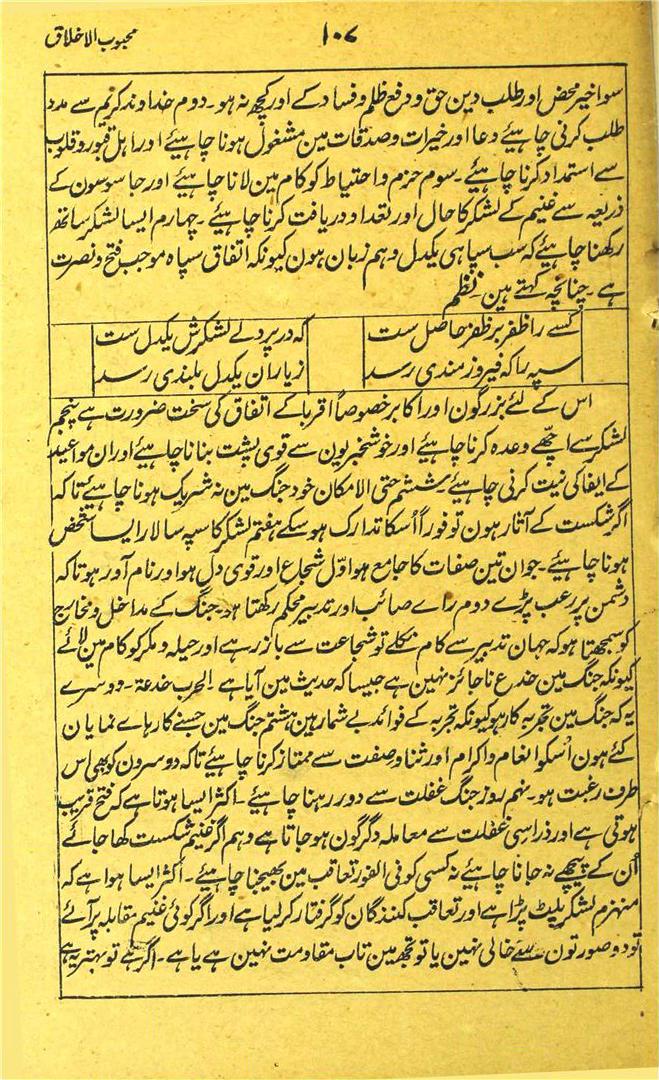 محبوب الاخلاق
۱۰۷
سوا خیر محض اور طلب دین حق و دفع ظلم و فساد کے اور کچھ نہ ہو۔ دوم خداوند کریم سے مدد
طلب کرنی چاہیئے دعا اور خیرات و صدقات مین مشغول ہونا چاہیئے اور اہل قبور و قلوب
سے استمداد کرنا چاہیئے۔ سوم حزم و احتیاط کو کام مین لانا چاہیئے اور جاسوسون کے
ذریعہ سے غنیم کے لشکر کا حال اور تعداد دریافت کرنا چاہیئے۔ چہارم ایسا لشکر ساتھ
رکھنا چاہیئے کہ سب سپاہی یکدل و ہم زبان ہون کیونکہ اتفاق سپاہ موجب فتح و نصرت
ہے۔ چنانچہ کہتے ہین۔ نظم
کسے را ظفر بر ظفر حاصل ست
کہ در پردلے لشکرش یکدل ست
سپہ را کہ فیروزمندی رسد
ز یاران یکدل بلندی رسد
اس کے لئے بزرگون اور اکابر خصوصاً اقربا کے اتفاق کی سخت ضرورت ہے پنجم
لشکر سے اچھے وعدہ کرنا چاہیئے اور خوشخبریون سے قوی پشت بنانا چاہیئے اور ان مواعید
کے ایفا کی نیت کرنی چاہیئے۔ ششم حتی الامکان خود جنگ مین نہ شریک ہونا چاہیئے تاکہ
اگر شکست کے آثار ہون تو فوراً اُسکا تدارک ہو سکے ہفتم لشکر کا سپہ سالار ایسا شخص
ہونا چاہیئے۔ جو ان تین صفات کا جامع ہو اوّل شجاع اور قوی دل ہو اور نام آور ہو تاکہ
دشمن پر رعب پڑے دوم راے صائب اور تدبیر محکم رکھتا ہو۔ جنگ کے مداخل و مخارج
کو سمجھتا ہو کہ جہان تدبیر سے کام نکلے تو شجاعت سے باز رہے اور حیلہ و مکر کو کام مین لائے
کیونکہ جنگ مین خدع ناجائز نہین ہے جیسا کہ حدیث مین آیا ہے۔ الحرب خدعة۔ دوسرے
یہ کہ جنگ مین تجربہ کار ہو کیونکہ تجربہ کے فوائد بے شمار ہین ہشتم جنگ مین جسنے کارہاے نمایان
کئے ہون اُسکو انعام و اکرام اور ثنا و صفت سے ممتاز کرنا چاہیئے تاکہ دوسرون کو بھی اس
طرف رغبت ہو۔ نہم روز جنگ غفلت سے دور رہنا چاہیئے۔ اکثر ایسا ہوتا ہے کہ فتح قریب
ہوتی ہے اور ذراسی غفلت سے معاملہ دگرگون ہو جاتا ہے دہم اگر غنیم شکست کھا جائے
اُن کے پیچھے نہ جانا چاہیئے نہ کسی کو فی الفور تعاقب مین بھیجنا چاہیئے۔ اکثر ایسا ہوا ہے کہ
منہزم لشکر پلٹ پڑا ہے اور تعاقب کنندگان کو گرفتار کر لیا ہے اور اگر کوئی غنیم مقابلہ پر آئے
تو دو صورتون سے خالی نہین یا تو تجھ مین تاب مقاومت نہین ہے یا ہے۔ اگر ہے تو بہتر یہ ہے